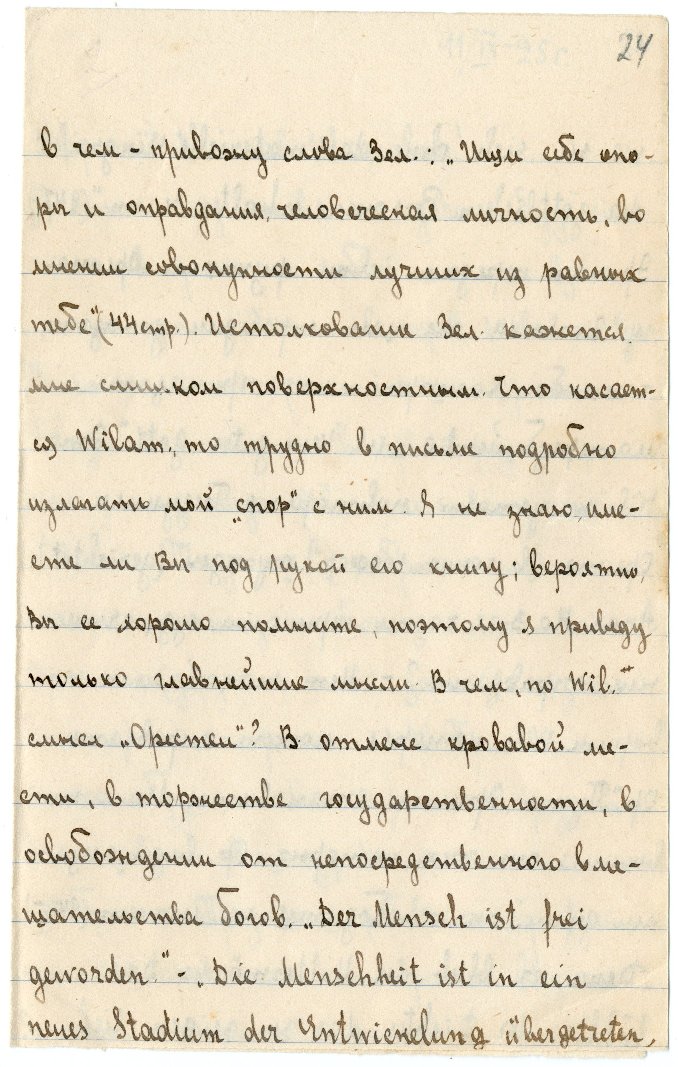 24
в чем – привожу слова Зел.: „Ищи себе опо-
ры и оправдания, человеческая личность, во
мнении совокупности лучших из равных
тебе" (44 стр.). Истолкование Зел. кажется
мне слишком поверхностным. Что касает-
ся Wilam., то трудно в письме подробно
излагать мой „спор" с ним. Я не знаю, име-
ете ли Вы под рукой его книгу; вероятно,
Вы ее хорошо помните, поэтому я приведу
только главнейшие мысли. В чем, по Wil.–
смысл „Орестеи"? В отмене кровавой ме-
сти, в торжестве государственности, в
освобождении от непосредственного вме-
шательства богов. „Der Mensch ist frei
geworden." – „Die Menschheit ist in ein
neues Stadium der Entwickelung übergetreten,